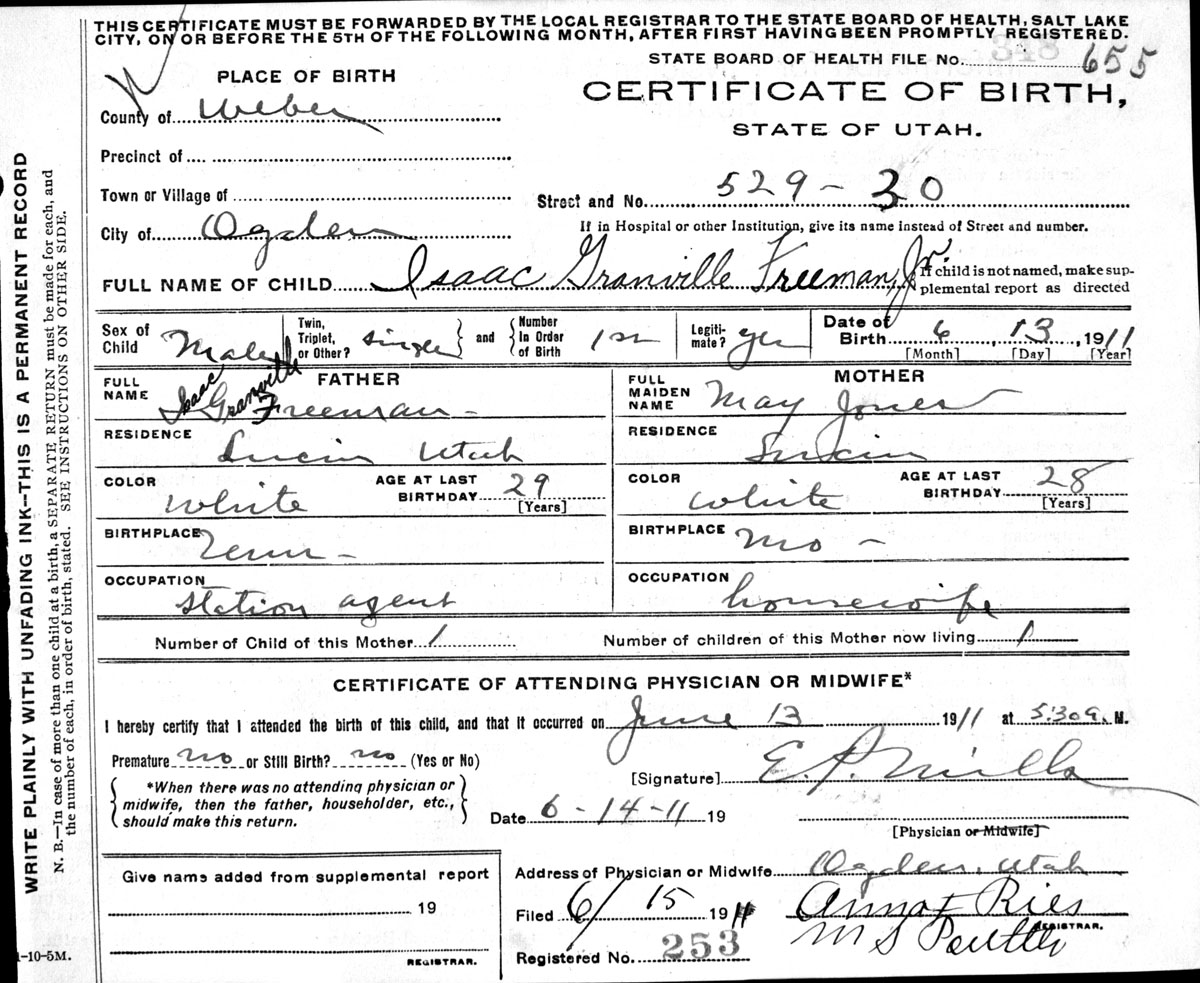 THIS CERTIFICATE MUST BE FORWARDED BY THE LOCAL REGISTRAR TO THE STATE BOARD OF HEALTH, SALT LAKE
CITY, ON OR BEFORE THE 5TH OF THE FOLLOWING MONTH, AFTER FIRST HAVING BEEN PROMPTLY REGISTERED.
348
STATE BOARD OF HEALTH FILE No. 655
PLACE OF BIRTH
CERTIFICATE OF BIRTH,
STATE OF UTAH.
County of Weber
Precinct of
Town or Village of
Street and No. 529 - 30
City of Ogden
If in Hospital or other Institution, give its name instead of Street and number.
FULL NAME OF CHILD Isaac Granville Freeman, Jr.
If child is not named, make sup-
plemental report as directed
Sex of Child Male
Twin, Triplet, or Other? single and Number In Order of Birth 1
Legiti-mate? yes
Date of Birth 6, 13, 1911
[Month] [Day] [Year]
FATHER
FULL NAME Isaac Granville Freeman -
MOTHER
FULL MAIDEN NAME May Jones
RESIDENCE Lucin Utah
RESIDENCE Lucin
COLOR White AGE AT LAST BIRTHDAY 29 [Years]
COLOR White AGE AT LAST BIRTHDAY 28 [Years]
BIRTHPLACE Tenn -
BIRTHPLACE Mo -
OCCUPATION Station agent
OCCUPATION housewife
Number of Child of this Mother 1
Number of children of this Mother now living 1
CERTIFICATE OF ATTENDING PHYSICIAN OR MIDWIFE*
I hereby certify that I attended the birth of this child, and that it occurred on June 13 1911 at 5:30 a. M.
Premature no or Still Birth? no (Yes or No)
[Signature] E. P. Mills
*When there was no attending physician or
midwife, then the father, householder, etc.,
should make this return.
Date 6-14-11 19
[Physician or Midwife]
Give name added from supplemental report
19
REGISTRAR.
Address of Physician or Midwife Ogden, Utah
Filed 6/15 1911 Anna F Ries
REGISTRAR.
M S
Registered No. 253
WRITE PLAINLY WITH UNFADING INK--THIS IS A PERMANENT RECORD
N. B.—In case of more than one child at a birth, a SEPARATE RETURN must be made for each, and
the number of each, in order of birth, stated. SEE INSTRUCTIONS ON OTHER SIDE.
-10-5M.